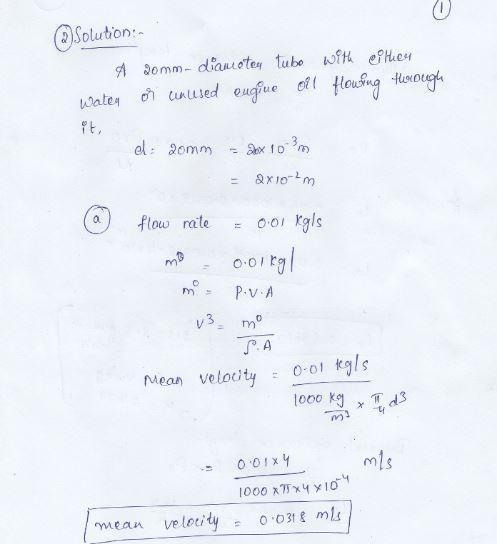 1
② Solution:-
A 20mm-diameter tube with either
water or unused engine oil flowing through
it.
d= 20mm = 20×10⁻³m
= 2×10⁻²m
ⓐ flow rate = 0.01 kg/s
m⁰ = 0.01 kg/
m⁰ = P.V.A
V³ = m⁰ / ρ.A
Mean velocity = 0.01 kg/s / 1000 kg/m³ × π/4 d3
= 0.01×4 / 1000×π×4×10⁻⁴ m/s
mean velocity = 0.0318 m/s